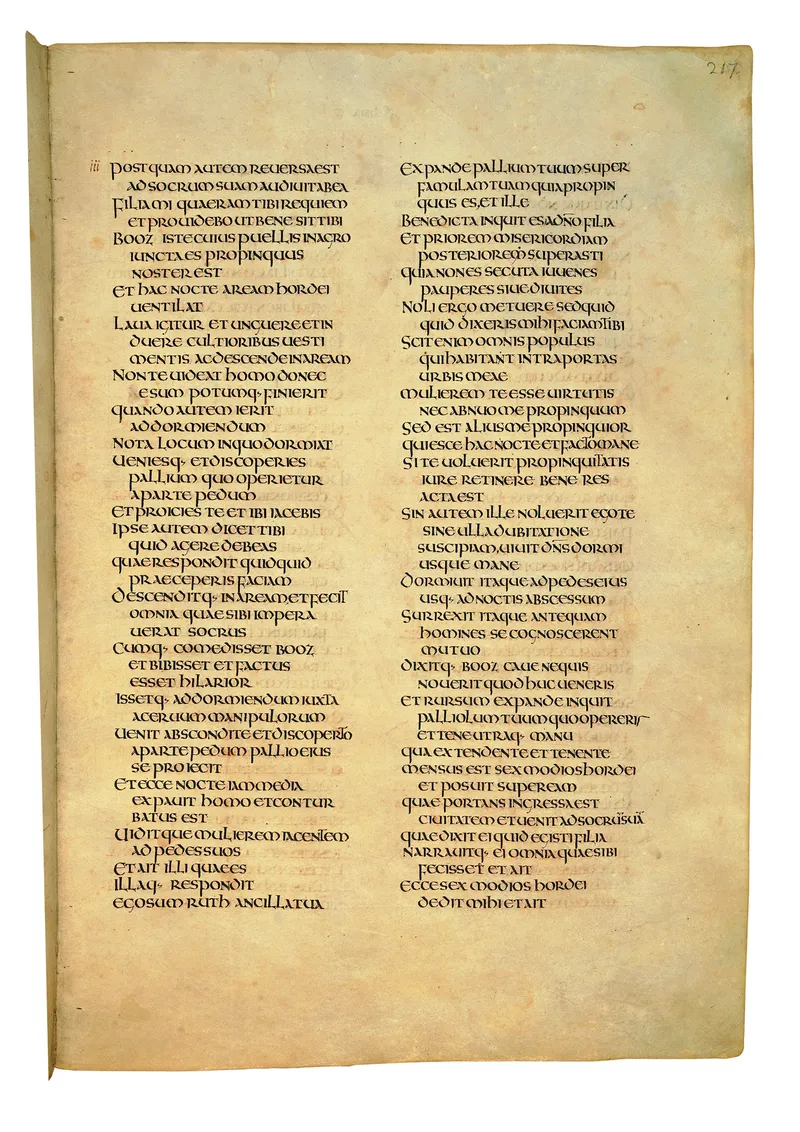 217
iii POSTQUAM AUTEM REUERSAEST
AD SOCRUM SUAM AUDIUIT ABEA
FILIA MI QUAERAM TIBI REQUIEM
ET PROUIDEBO UT BENE SIT TIBI
BOOZ ISTE CUIUS PUELLIS INAGRO
IUNCTA ES PROPINQUUS
NOSTER EST
ET HAC NOCTE AREAM HORDEI
UENTILAT
LAUA IGITUR ET UNGUERE ET IN
DUERE CULTIORIBUS UESTI
MENTIS AC DESCENDE IN AREAM
NON TE UIDEAT HOMO DONEC
ESUM POTUMQ· FINIERIT
QUANDO AUTEM IERIT
AD DORMIENDUM
NOTA LOCUM INQUO DORMIAT
UENIESQ· ET DISCOPERIES
PALLIUM QUO OPERIETUR
APARTE PEDUM
ET PROICIES TE ET IBI IACEBIS
IPSE AUTEM DICET TIBI
QUID AGERE DEBEAS
QUAE RESPONDIT QUIDQUID
PRAECEPERIS FACIAM
DESCENDITQ· IN AREAM, ET FECIT
OMNIA QUAE SIBI IMPERA
UERAT SOCRUS
CUMQ· COMEDISSET BOOZ
ET BIBISSET ET FACTUS
ESSET HILARIOR
ISSETQ· AD DORMIENDUM IUXTA
ACERUUM MANIPULORUM
UENIT ABSCONDITE ET DISCOPERTO
APARTE PEDUM PALLIO EIUS
SE PROIECIT
ET ECCE NOCTE IAM MEDIA
EXPAUIT HOMO ET CONTUR
BATUS EST
UIDITQUE MULIEREM IACENTEM
AD PEDES SUOS
ET AIT ILLI QUAE ES
ILLAQ· RESPONDIT
EGO SUM RUTH ANCILLA TUA
EXPANDE PALLIUM TUUM SUPER
FAMULAM TUAM QUIA PROPIN
QUUS ES, ET ILLE
BENEDICTA INQUIT ES A DÑO FILIA
ET PRIOREM MISERICORDIAM
POSTERIORE SUPERASTI
QUIA NON ES SECUTA IUUENES
PAUPERES SIUE DIUITES
NOLI ERGO METUERE SED QUID
QUID DIXERIS MIHI FACIAM TIBI
SCIT ENIM OMNIS POPULUS
QUI HABITANT INTRA PORTAS
URBIS MEAE
MULIEREM TE ESSE UIRTUTIS
NEC ABNUO ME PROPINQUUM
SED EST ALIUS ME PROPINQUIOR
QUIESCE HAC NOCTE ET FACTO MANE
SI TE UOLUERIT PROPINQUITATIS
IURE RETINERE BENE RES
ACTA EST
SIN AUTEM ILLE NOLUERIT EGO TE
SINE ULLA DUBITATIONE
SUSCIPIAM, UIUIT DÑS DORMI
USQUE MANE
DORMIUIT ITAQUE AD PEDES EIUS
USQ· AD NOCTIS ABSCESSUM
SURREXIT ITAQUE ANTEQUAM
HOMINES SE COGNOSCERENT
MUTUO
DIXITQ· BOOZ CAUE NEQUIS
NOUERIT QUOD HUC UENERIS
ET RURSUM EXPANDE INQUIT
PALLIOLUM TUUM QUO OPERERIS
ET TENE UTRAQ· MANU
QUA EXTENDENTE ET TENENTE
MENSUS EST SEX MODIOS HORDEI
ET POSUIT SUPER EAM
QUAE PORTANS INGRESSA EST
CIUITATEM ET UENIT AD SOCRŪ SUĀ
QUAE DIXIT EI QUID EGISTI FILIA
NARRAUITQ· EI OMNIA QUAE SIBI
FECISSET ET AIT
ECCE SEX MODIOS HORDEI
DEDIT MIHI ET AIT